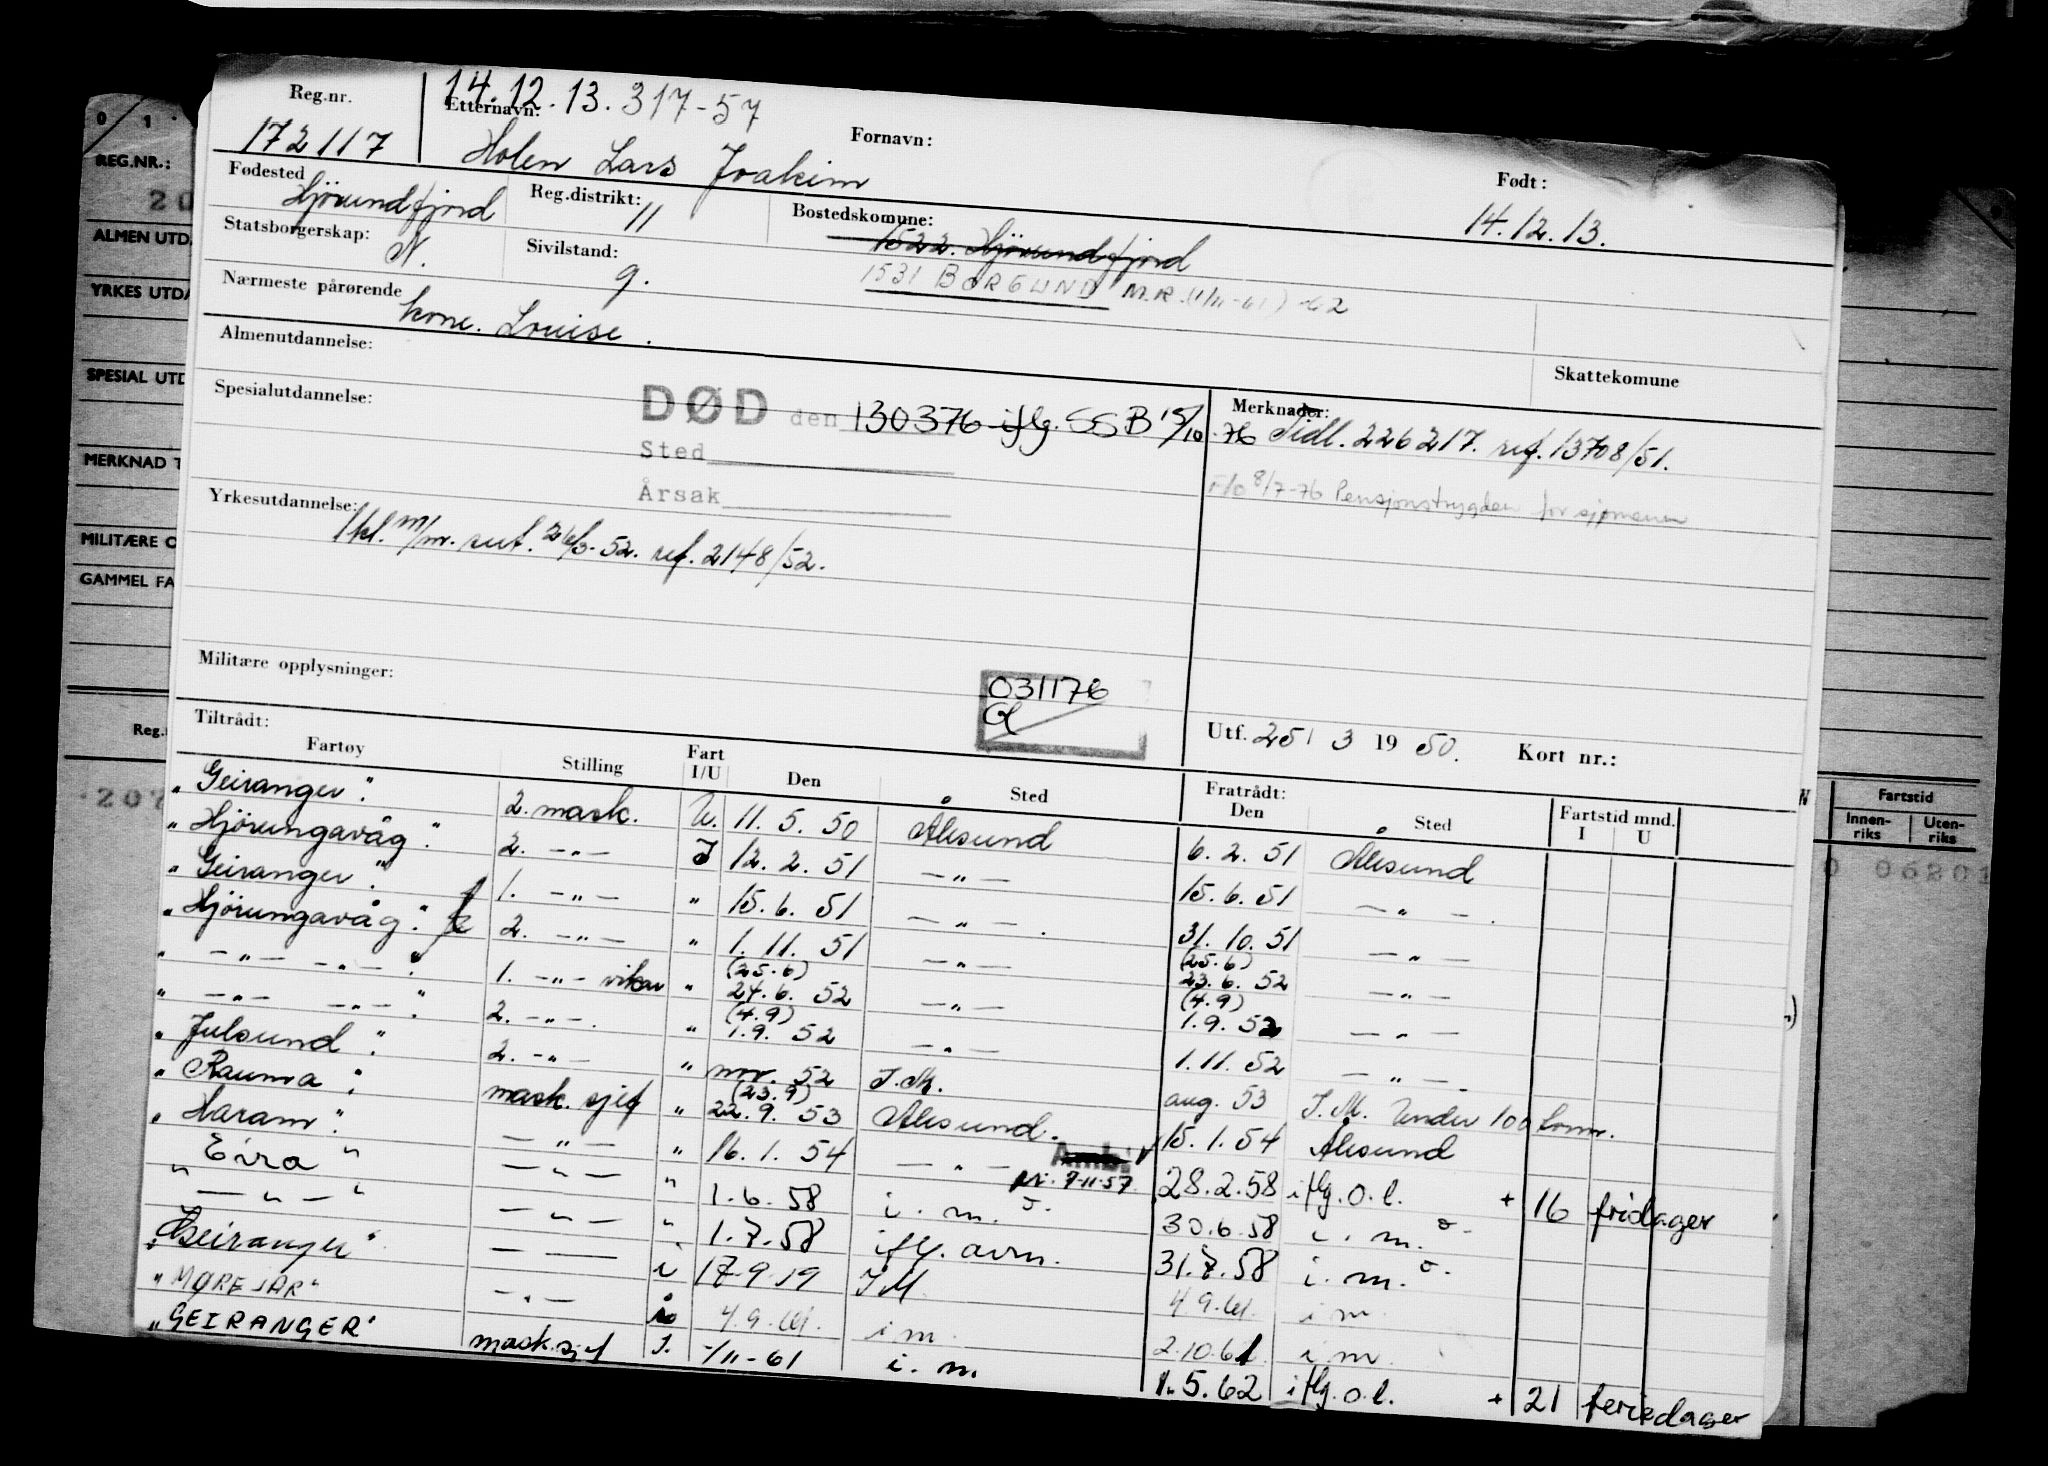 0 1
REG.NR.:
20
ALMEN UTD
YRKES UTDA
SPESIAL UTD
MERKNAD T
MILITÆRE O
GAMMEL FA
Reg.
207
Reg.nr.
172117
14.12.13.317-57
Etternavn:
Fornavn:
Holen Lars Joakim
Født:
14.12.13.
Fødested
Hjørundfjord
Reg.distrikt:
11
Bostedskomune:
1522. Hjørundfjord
1531 BORGUND M.R. (1/11-61) -62
Statsborgerskap:
N.
Sivilstand:
g.
Nærmeste pårørende
kone. Louise.
Skattekomune
Almenutdannelse:
Spesialutdannelse:
DØD den 130376 iflg. SSB 15/10-76
Sted
Årsak
Merknader:
Tidl. 226217. ref. 13708/51.
8/7-76 Pensjonstrygden for sjømenn
Yrkesutdannelse:
1 kl. m/m. sert. 26/3-52. ref. 2148/52.
Militære opplysninger:
031176
Utf. 25/ 3 19 50. Kort nr.:
Tiltrådt:
Fartøy Stilling Fart I/U Den Sted Fratrådt: Den Sted Fartstid mnd. I U
"Geiranger". 2. mask. U. 11. 5. 50 Ålesund 6. 2. 51 Ålesund
"Hjørungavåg". 2. -"- I 12. 2. 51 -"- 15. 6. 51 -"-.
"Geiranger". 1. -"- " 15. 6. 51 -"-. 31. 10. 51 -"-
"Hjørungavåg". 2. -"- " 1. 11. 51 -"- (25.6) 23. 6. 52 -"-
" -"- -"- ". 1. -"- vikar " (25.6) 24. 6. 52 -"- (4.9) 1. 9. 52 -"-
" -"- -"- ". 2. -"-. " (4.9) 1. 9. 52 -"- 1. 11. 52 -"-.
"Julsund". 2. -"- " nov. 52 I.M. aug. 53 I.M. Under 100 tonn.
"Rauma". mask. sjef " (23.9) 22. 9. 53 Ålesund. 15. 1. 54 Ålesund
"Haram". -"- " 16. 1. 54 -"- pr. 7-11-57 28. 2. 58 iflg. o. l. + 16 fridager
"Eira" -"- " 1. 6. 58 i. m. 30. 6. 58 i. m.
" -"- " -"- " 1. 7. 58 iflg. avm. 31. 7. 58 i. m.
"Geiranger" - - i 17-9-19 I M 4. 9. 61. i m.
"MØREJAR" -"- 4. 9. 61. i m. 2. 10. 61. i m.
"GEIRANGER" mask.sjef I. -/11-61 i. m. 1. 5. 62 iflg. o. l. + 21 feriedager
Fartstid
Innen-
riks
Uten-
riks
0 06201